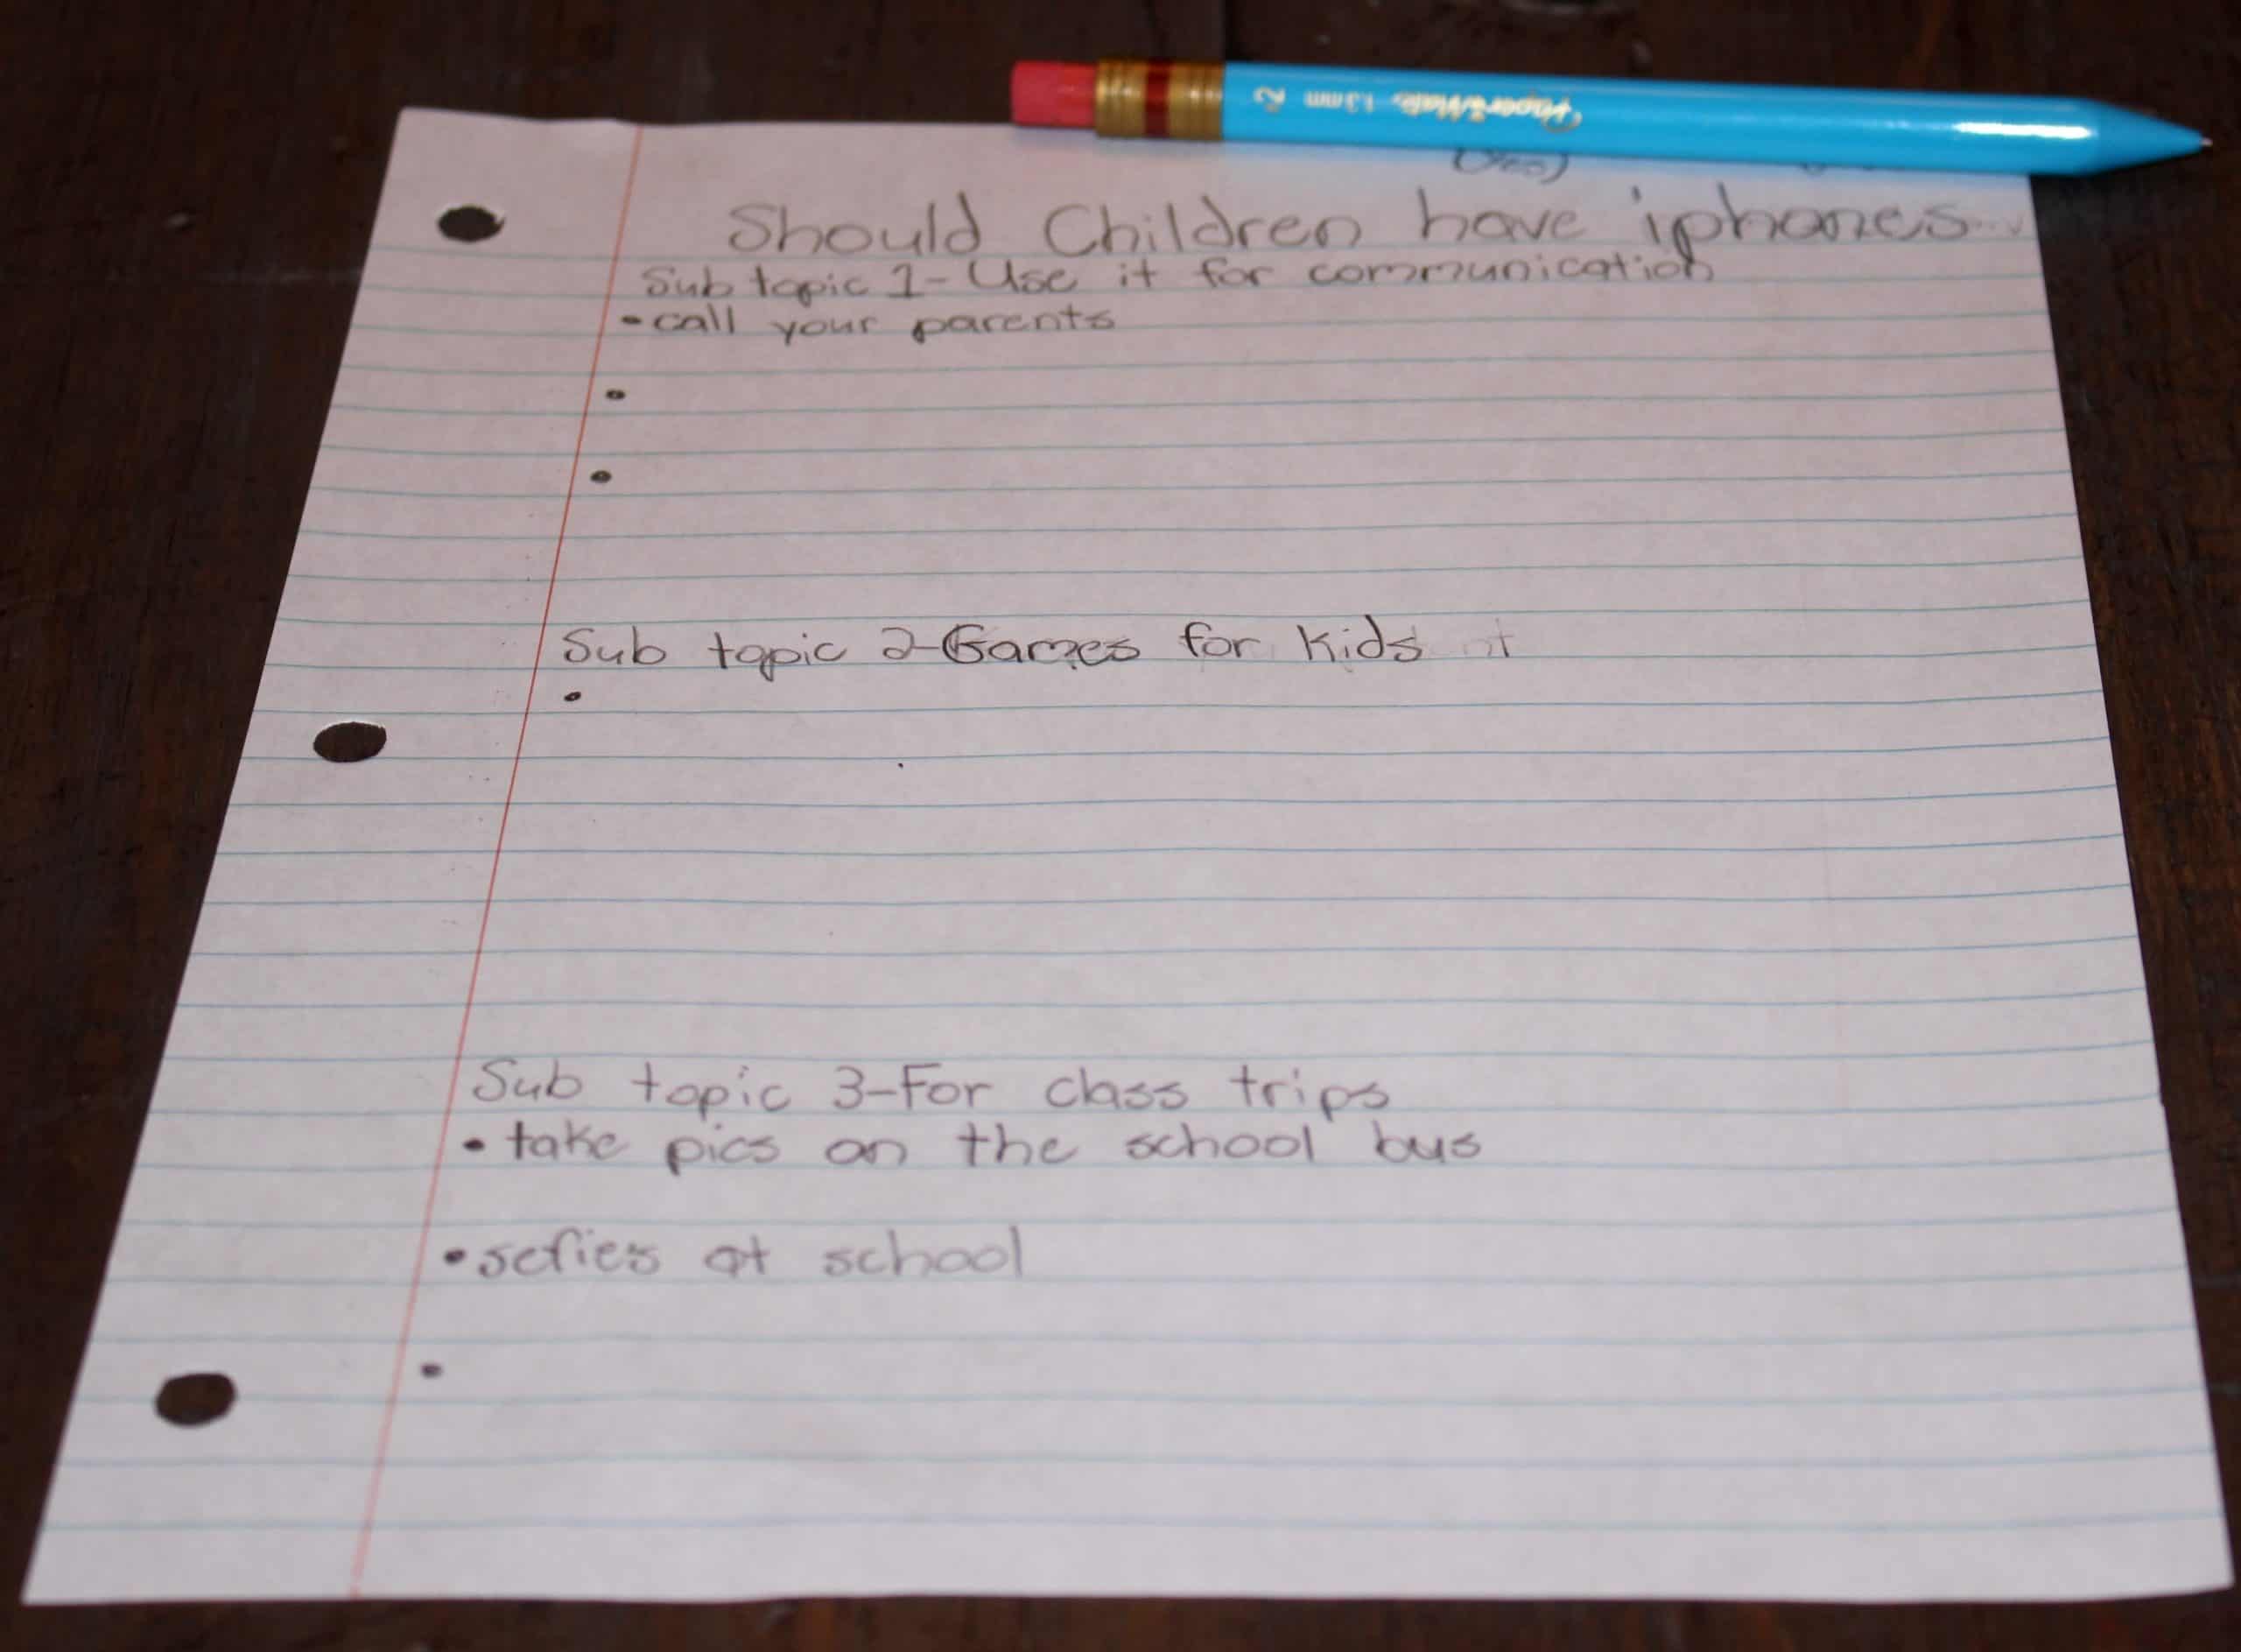 PaperMate 1.3mm
(Yes)
Should Children have iphones
Sub topic 1- Use it for communication
•call your parents
•
•
Sub topic 2-Games for kids
•
Sub topic 3-For class trips
• take pics on the school bus
•selfies at school
•